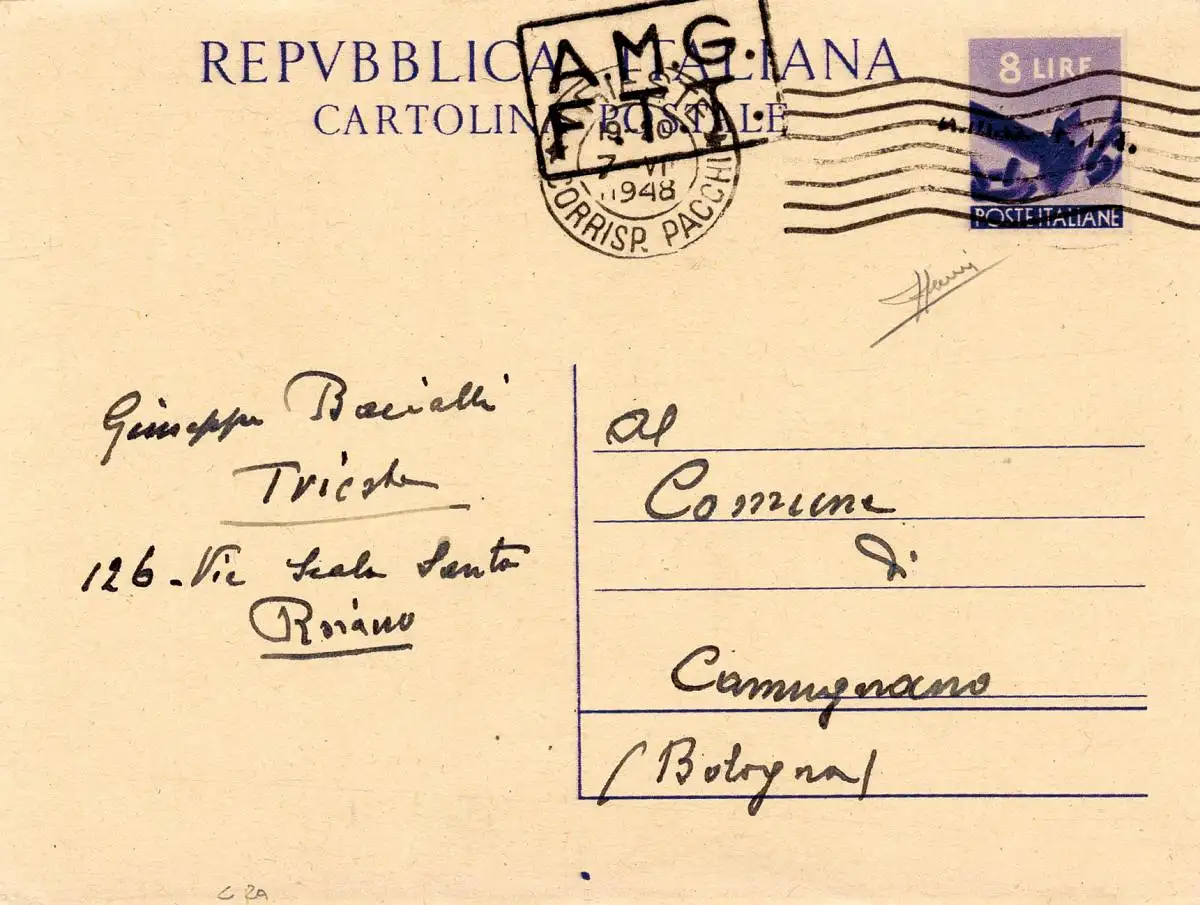 REPVBBLICA ITALIANA
CARTOLINA POSTALE
A.M.G.
F.T.T.
TRIESTE
19-20
7 VI
1948
CORRISP. PACCHI
8 LIRE
POSTE ITALIANE
Giuseppe
Trieste
126 - Via Scala Santa
Roiano
Al
Comune
di
Camugnano
(Bologna)